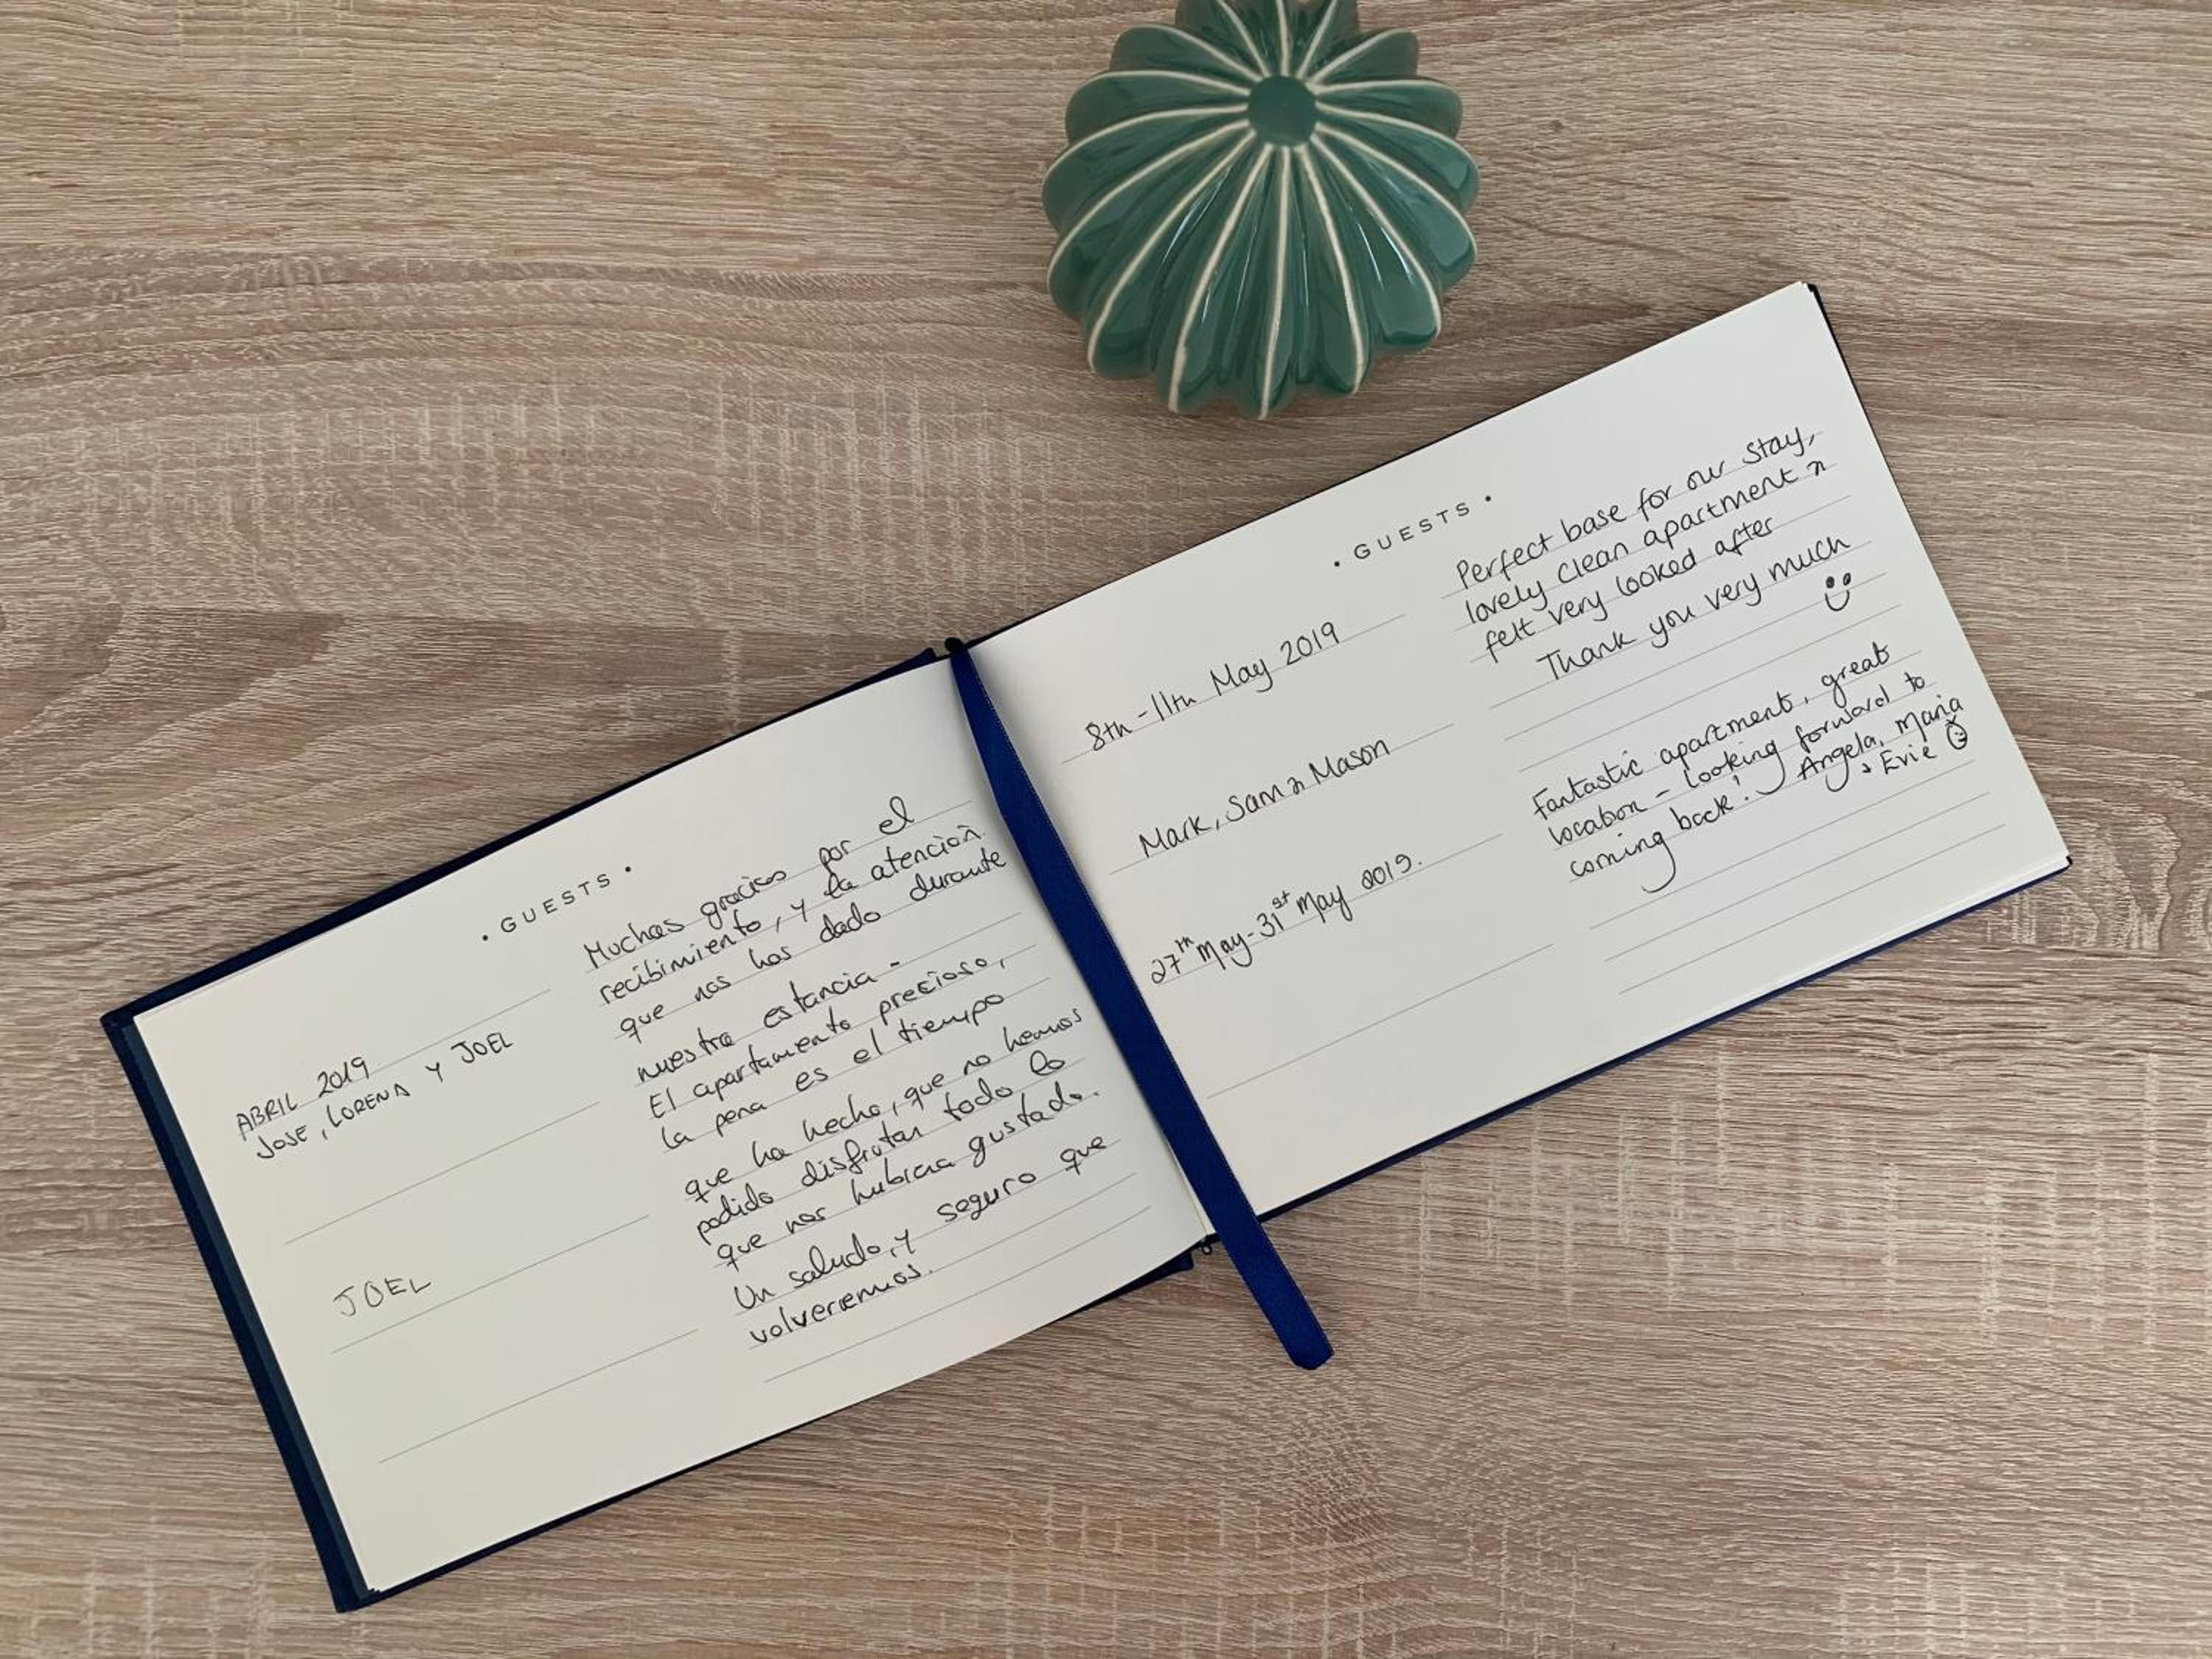 · GUESTS ·
ABRIL 2019
JOSE, LORENA Y JOEL
JOEL
Muchas gracias por el
recibimiento, y la atención
que nos has dado durante
nuestra estancia -
El apartamento precioso,
la pena es el tiempo
que ha hecho, que no hemos
podido disfrutar todo lo
que nos hubiera gustado.
Un saludo, y seguro que
volveremos.
· GUESTS ·
8th - 11th May 2019
Mark, Sam & Mason
Perfect base for our stay,
lovely clean apartment &
felt very looked after
Thank you very much
27th May - 31st May 2019.
Fantastic apartment, great
location - looking forward to
coming back! Angela, Maria
+ Evie